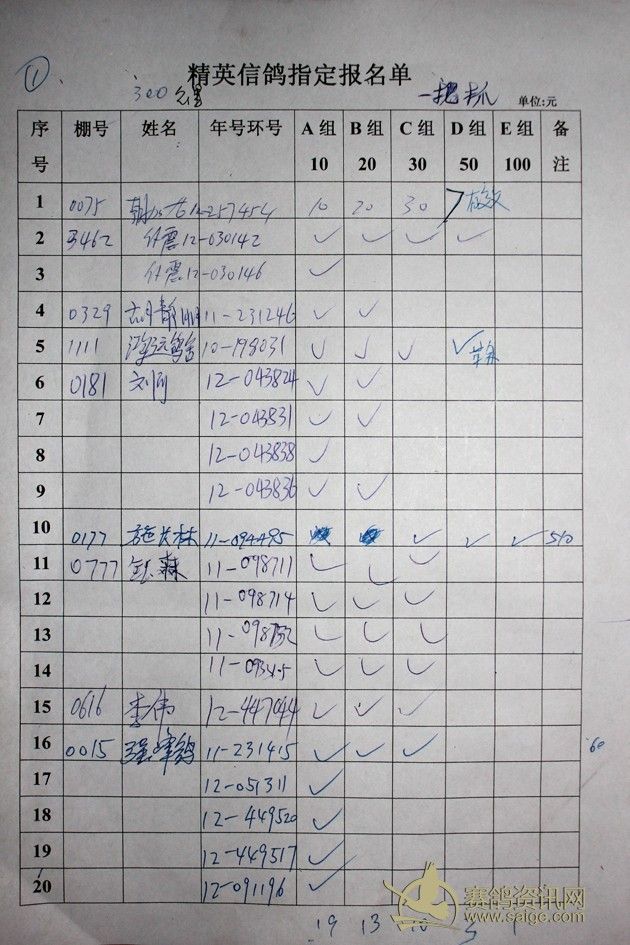 ①
精英信鸽指定报名单
300公里 一把抓 单位:元
序号 棚号 姓名 年号环号 A组10 B组20 C组30 D组50 E组100 备注
1 0075 12-257454 10 20 30
2 付震 12-030142 ✓ ✓ ✓ ✓
3 付震 12-030146 ✓
4 0329 胡静 11-231246 ✓ ✓
5 1111 鸿运鸽舍 10-198031 ✓ ✓ ✓ ✓
6 0181 刘刚 12-043824 ✓ ✓
7 12-043831 ✓ ✓
8 12-043838 ✓
9 12-043836 ✓ ✓
10 0177 施长林 11-094495 ✓ ✓ ✓ 510
11 0777 森 11-098711 ✓ ✓ ✓
12 11-098714 ✓ ✓ ✓
13 ✓ ✓ ✓
14 ✓ ✓ ✓
15 0616 李伟 12-447044 ✓ ✓ ✓
16 0015 11-231415 ✓ ✓ ✓ 60
17 12-051311 ✓
18 12-449520 ✓
19 12-449517 ✓
20 12-091196 ✓
19 13
赛鸽资讯网
www.saige.com